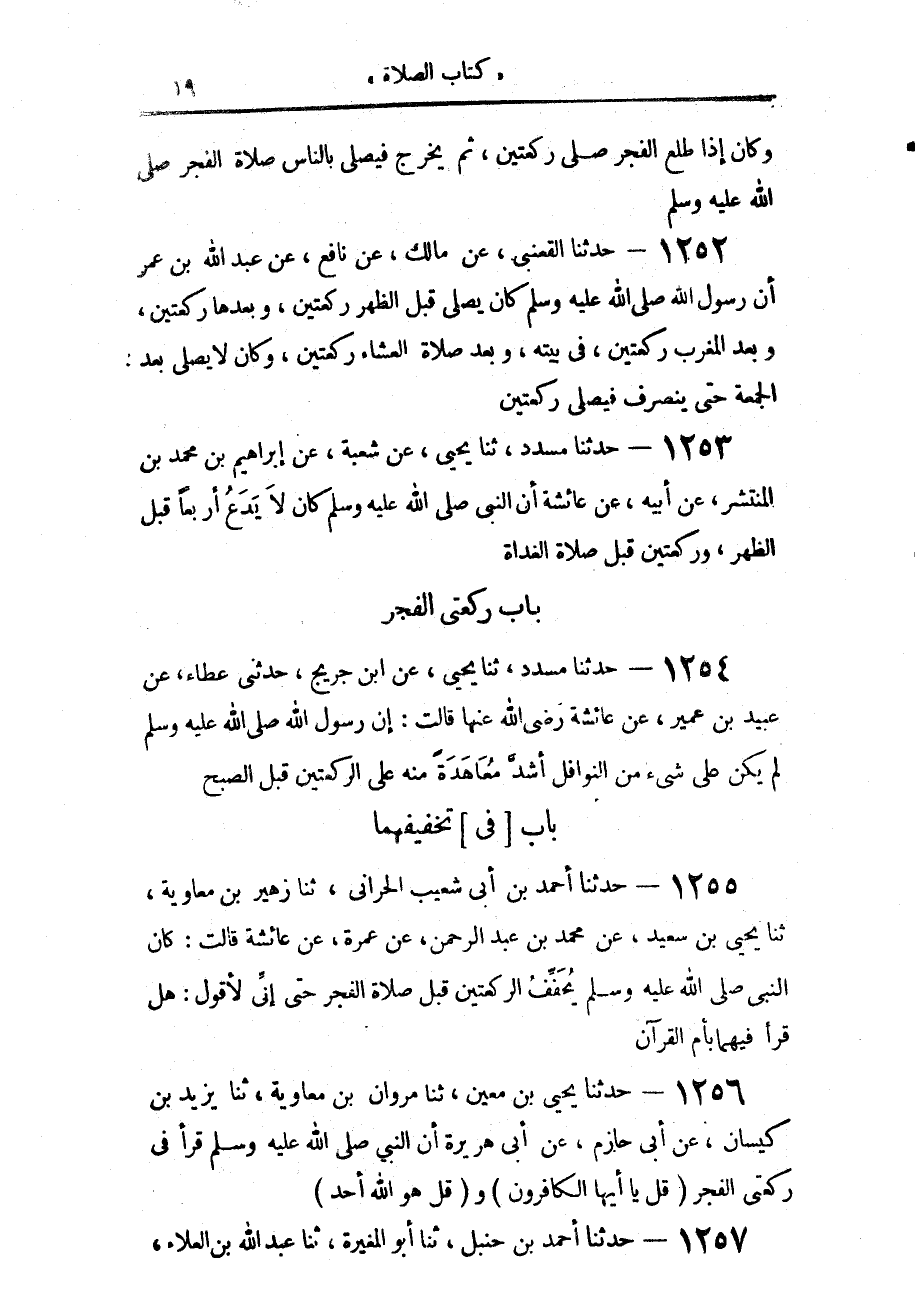 « كتاب الصلاة »
١٩
وكان إذا طلع الفجر صلى ركعتين ، ثم يخرج فيصلى بالناس صلاة الفجر صلى
الله عليه وسلم
١٢٥٢ – حدثنا القعنبى ، عن مالك ، عن نافع ، عن عبد الله بن عمر
أن رسول الله صلى الله عليه وسلم كان يصلى قبل الظهر ركعتين ، وبعدها ركعتين ،
وبعد المغرب ركعتين ، فى بيته ، وبعد صلاة العشاء ركعتين ، وكان لا يصلى بعد :
الجمعة حتى ينصرف فيصلى ركعتين
١٢٥٣ – حدثنا مسدد ، ثنا يحيى ، عن شعبة ، عن إبراهيم بن محمد بن
المنتشر ، عن أبيه ، عن عائشة أن النبى صلى الله عليه وسلم كان لاَ يَدَعُ أربعاً قبل
الظهر ، وركعتين قبل صلاة الغداة
باب ركعتى الفجر
١٢٥٤ – حدثنا مسدد ، ثنا يحيى ، عن ابن جريج ، حدثنى عطاء، عن
عبيد بن عمير ، عن عائشة رَضى الله عنها قالت : إن رسول الله صلى الله عليه وسلم
لم يكن على شىء من النوافل أشدَّ مُعَاهَدَةً منه على الركعتين قبل الصبح
باب [ فى ] تخفيفهما
١٢٥٥ – حدثنا أحمد بن أبى شعيب الحرانى ، ثنا زهير بن معاوية ،
ثنا يحيى بن سعيد ، عن محمد بن عبد الرحمن، عن عمرة ، عن عائشة قالت : كان
النبى صلى الله عليه وسلم يُخَفِّفُ الركعتين قبل صلاة الفجر حتى إنِّى لأقول : هل
قرأ فيهما بأم القرآن
١٢٥٦ – حدثنا يحيى بن معين ، ثنا مروان بن معاوية ، ثنا يزيد بن
كيسان ، عن أبى حازم ، عن أبى هريرة أن النبي صلى الله عليه وسلم قرأ فى
ركعتى الفجر ( قل يا أيها الكافرون ) و ( قل هو الله أحد )
١٢٥٧ – حدثنا أحمد بن حنبل ، ثنا أبو المغيرة ، ثنا عبد الله بن العلاء ،